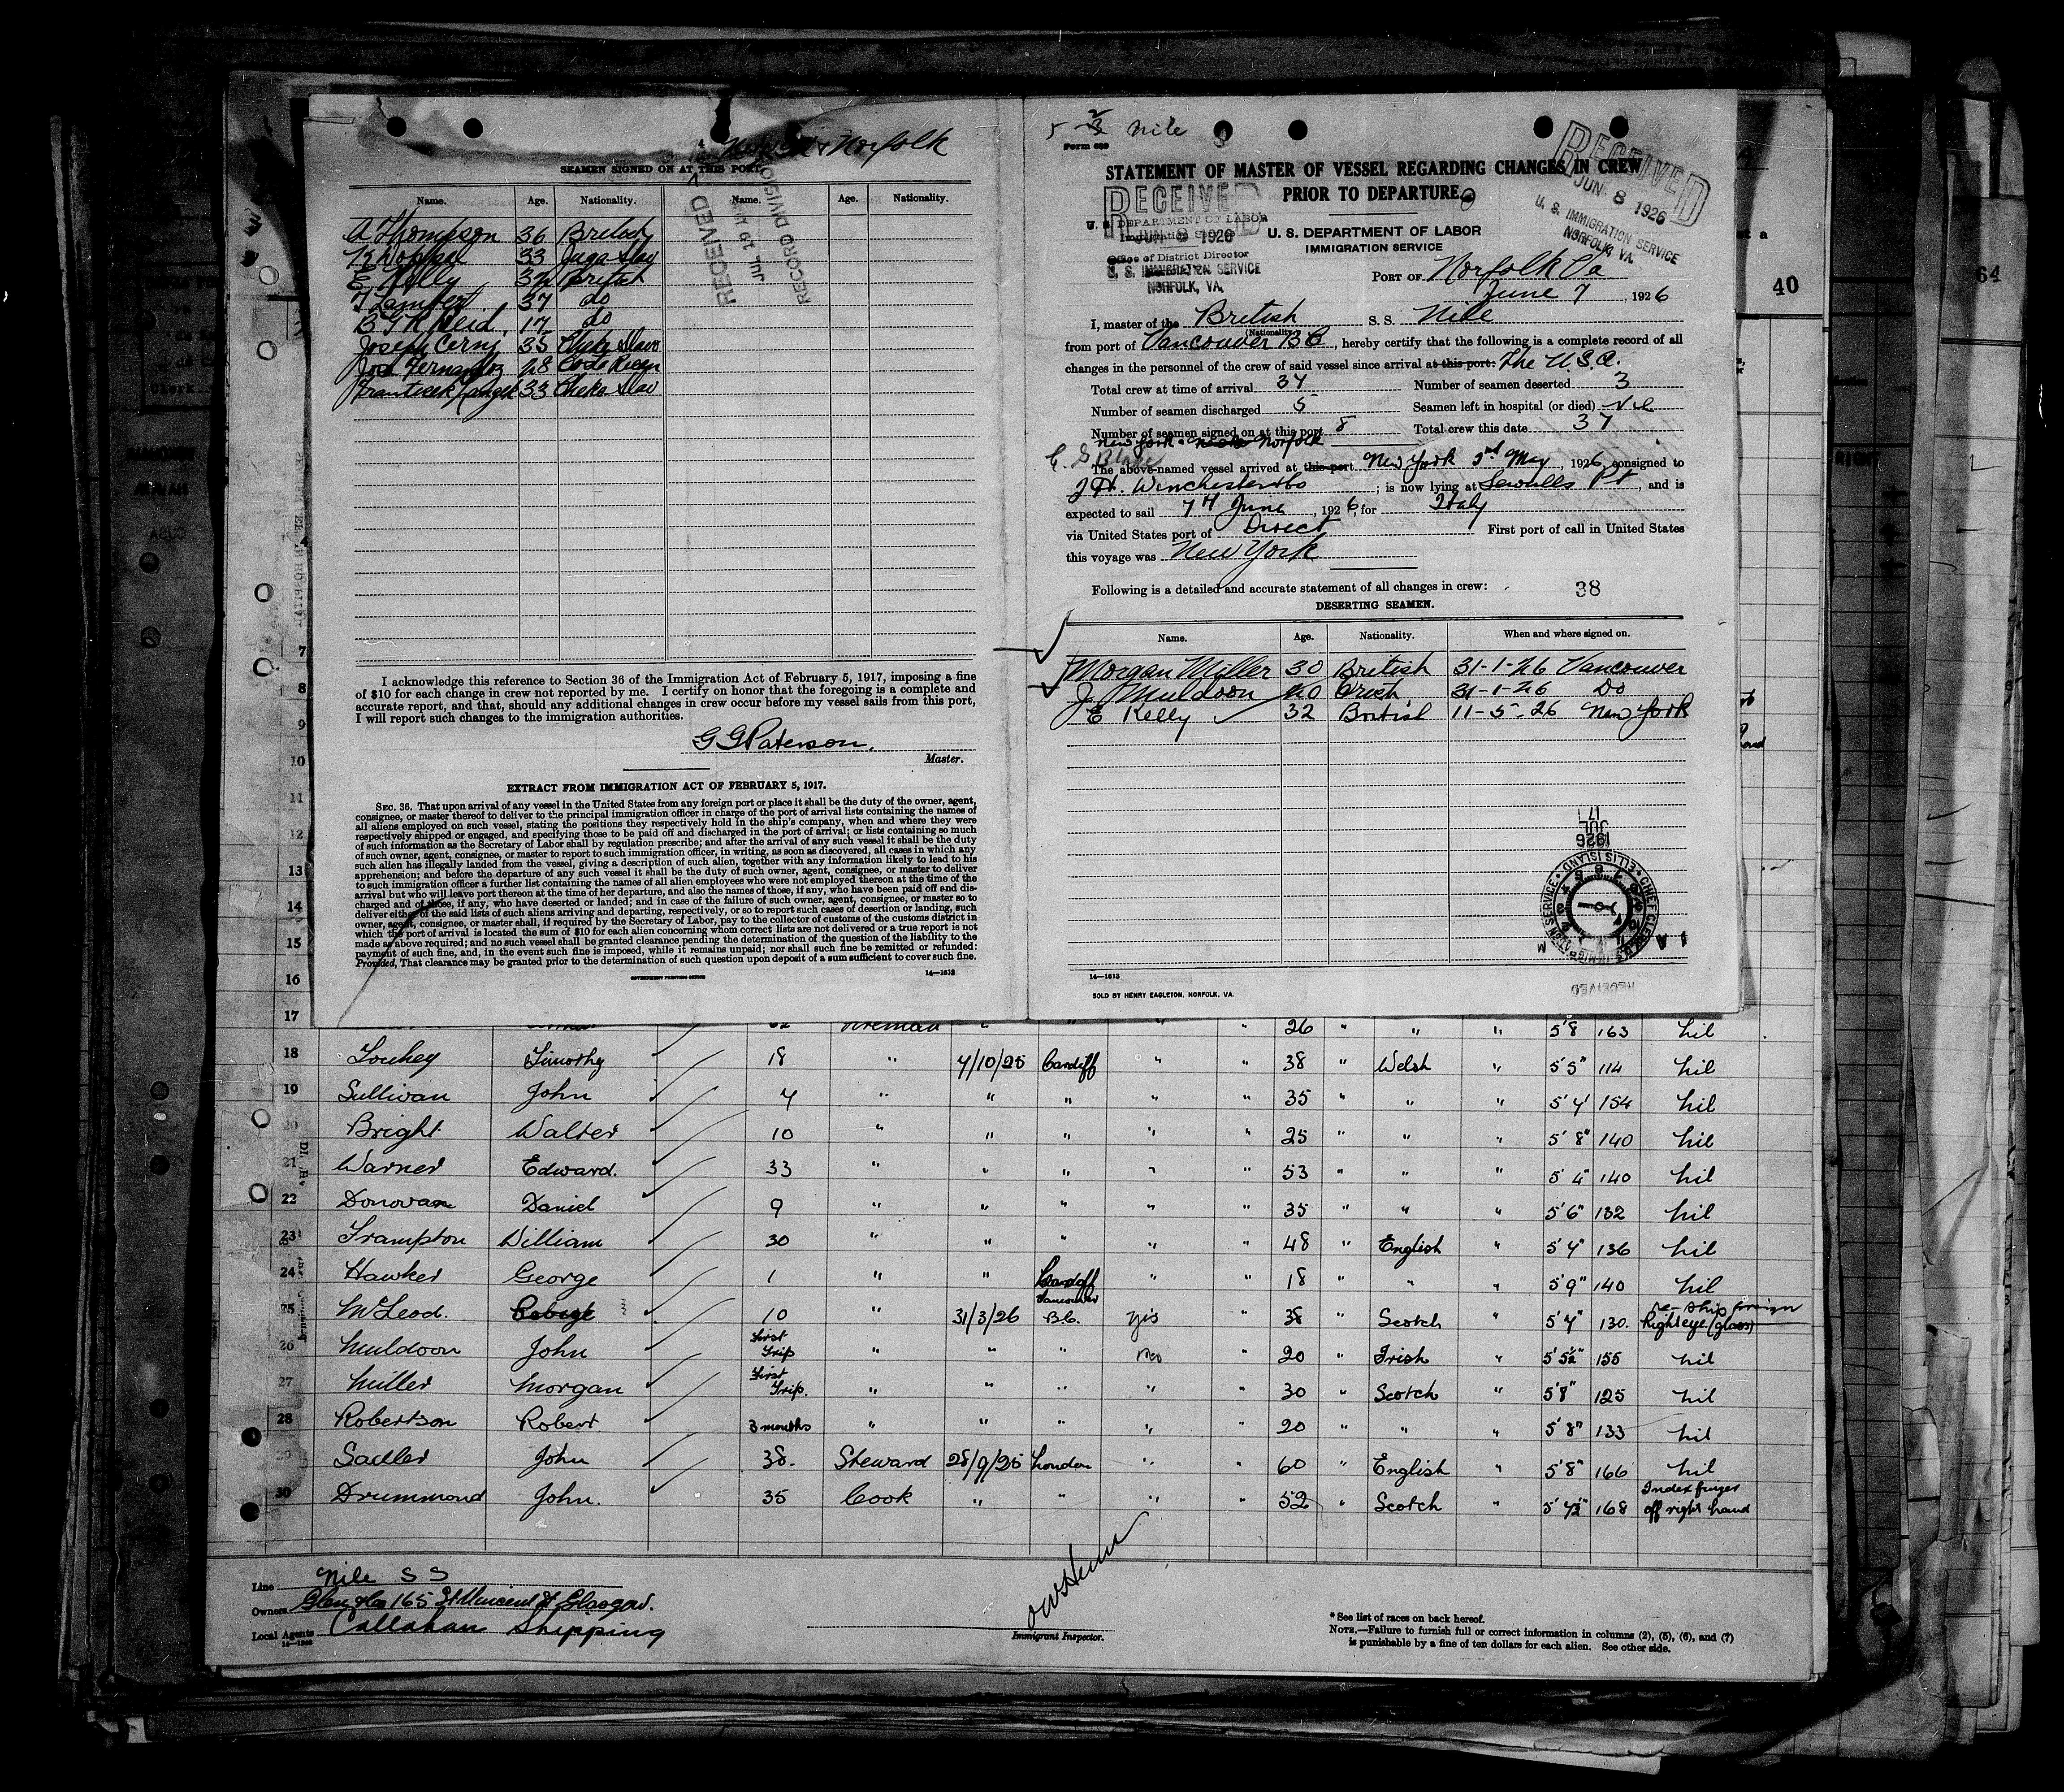 New York & Norfolk
SEAMEN SIGNED ON AT THIS PORT.
Name. Age. Nationality. Name. Age. Nationality.
A Thompson 36 British
33 Jugo Slav
E Kelly 32 British
T Lambert 37 do
B G R Reid. 17 do
Joseph Cerny 35 Cheko Slavo
Jose Fernandez 28 Costo Rican
Frantisek Langer 33 Cheko Slav
RECEIVED
JUL 19
RECORD DIVISION
I acknowledge this reference to Section 36 of the Immigration Act of February 5, 1917, imposing a fine
of $10 for each change in crew not reported by me. I certify on honor that the foregoing is a complete and
accurate report, and that, should any additional changes in crew occur before my vessel sails from this port,
I will report such changes to the immigration authorities.
G G Paterson.
Master.
EXTRACT FROM IMMIGRATION ACT OF FEBRUARY 5, 1917.
SEC. 36. That upon arrival of any vessel in the United States from any foreign port or place it shall be the duty of the owner, agent,
consignee, or master thereof to deliver to the principal immigration officer in charge of the port of arrival lists containing the names of
all aliens employed on such vessel, stating the positions they respectively hold in the ship's company, when and where they were
respectively shipped or engaged, and specifying those to be paid off and discharged in the port of arrival; or lists containing so much
of such information as the Secretary of Labor shall by regulation prescribe; and after the arrival of any such vessel it shall be the duty
of such owner, agent, consignee, or master to report to such immigration officer, in writing, as soon as discovered, all cases in which any
such alien has illegally landed from the vessel, giving a description of such alien, together with any information likely to lead to his
apprehension; and before the departure of any such vessel it shall be the duty of such owner, agent, consignee, or master to deliver
to such immigration officer a further list containing the names of all alien employees who were not employed thereon at the time of the
arrival but who will leave port thereon at the time of her departure, and also the names of those, if any, who have been paid off and dis-
charged and of those, if any, who have deserted or landed; and in case of the failure of such owner, agent, consignee, or master so to
deliver either of the said lists of such aliens arriving and departing, respectively, or so to report such cases of desertion or landing, such
owner, agent, consignee, or master shall, if required by the Secretary of Labor, pay to the collector of customs of the customs district in
which the port of arrival is located the sum of $10 for each alien concerning whom correct lists are not delivered or a true report is not
made as above required; and no such vessel shall be granted clearance pending the determination of the question of the liability to the
payment of such fine, and, in the event such fine is imposed, while it remains unpaid; nor shall such fine be remitted or refunded:
Provided, That clearance may be granted prior to the determination of such question upon deposit of a sum sufficient to cover such fine.
GOVERNMENT PRINTING OFFICE 14—1613
5 Nile
Form 689
STATEMENT OF MASTER OF VESSEL REGARDING CHANGES IN CREW
PRIOR TO DEPARTURE.
RECEIVED
JUN 8 1926
U. S. IMMIGRATION SERVICE
NORFOLK, VA.
U. S. DEPARTMENT OF LABOR
Immigration Service
RECEIVED
JUN 8 1926
Office of District Director
U. S. IMMIGRATION SERVICE
NORFOLK, VA.
U. S. DEPARTMENT OF LABOR
IMMIGRATION SERVICE
PORT OF Norfolk Va
June 7, 1926
I, master of the British S. S. Nile
(Nationality)
from port of Vancouver BC, hereby certify that the following is a complete record of all
changes in the personnel of the crew of said vessel since arrival at this port: The U.S.A.
Total crew at time of arrival 37 Number of seamen deserted 3
Number of seamen discharged 5 Seamen left in hospital (or died) Nil
Number of seamen signed on at this port 8 Total crew this date 37
New York Norfolk
The above-named vessel arrived at this port New York 2nd May, 1926, consigned to
J H. Winchester & Co; is now lying at Sewells Pt, and is
expected to sail 7th June, 1926, for Italy
via United States port of Direct First port of call in United States
this voyage was New York
Following is a detailed and accurate statement of all changes in crew: 38
DESERTING SEAMEN.
Name. Age. Nationality. When and where signed on.
Morgan Miller 30 British 31-1-26 Vancouver
J Muldoon 20 Irish 31-1-26 Do
E Kelly 32 British 11-5-26 New York
1926
JUL
17
CHIEF CLERK
ELLIS ISLAND
RECEIVED
14—1613
SOLD BY HENRY EAGLETON, NORFOLK, VA.
40
64
7
8
9
10
11
12
13
14
15
16
17 Fireman " " " " 26 " " " 5'8 163 Nil
18 Touhey Timothy 18 " 7/10/25 Cardiff " " 38 " Welsh " 5'5" 114 Nil
19 Sullivan John 7 " " " " " 35 " " " 5'7' 154 Nil
20 Bright Walter 10 " " " " " 25 " " " 5'8" 140 Nil
21 Warner Edward. 33 " " " " " 53 " " " 5'4" 140 Nil
22 Donovan Daniel 9 " " " " " 35 " " " 5'6" 132 Nil
23 Frampton William 30 " " " " " 48 " English " 5'7" 136 Nil
24 Hawker George 1 " " Cardiff " " 18 " " " 5'9" 140 Nil
25 McLeod. 10 " 31/3/26 Vancouver B.C. Yes " 38 " Scotch " 5'7" 130. re-ship foreign Right eye (glass)
26 Muldoon John First Trip " " " No " 20 " Irish " 5'5½" 155 Nil
27 Miller Morgan First Trip. " " " " " 30 " Scotch " 5'8" 125 Nil
28 Robertson Robert 3 months " " " " 20 " " " 5'8" 133 Nil
29 Sadler John 38. Steward 28/9/25 London " " 60 " English " 5'8" 166 Nil
30 Drummond John. 35 Cook " " " " 52 " Scotch " 5'7½" 168 Index finger off right hand
Line Nile S S
Owners Glen & Co 165 St Vincent St Glasgow.
Local Agents Callahan Shipping
Immigrant Inspector.
* See list of races on back hereof.
NOTE.—Failure to furnish full or correct information in columns (2), (5), (6), and (7)
is punishable by a fine of ten dollars for each alien. See other side.